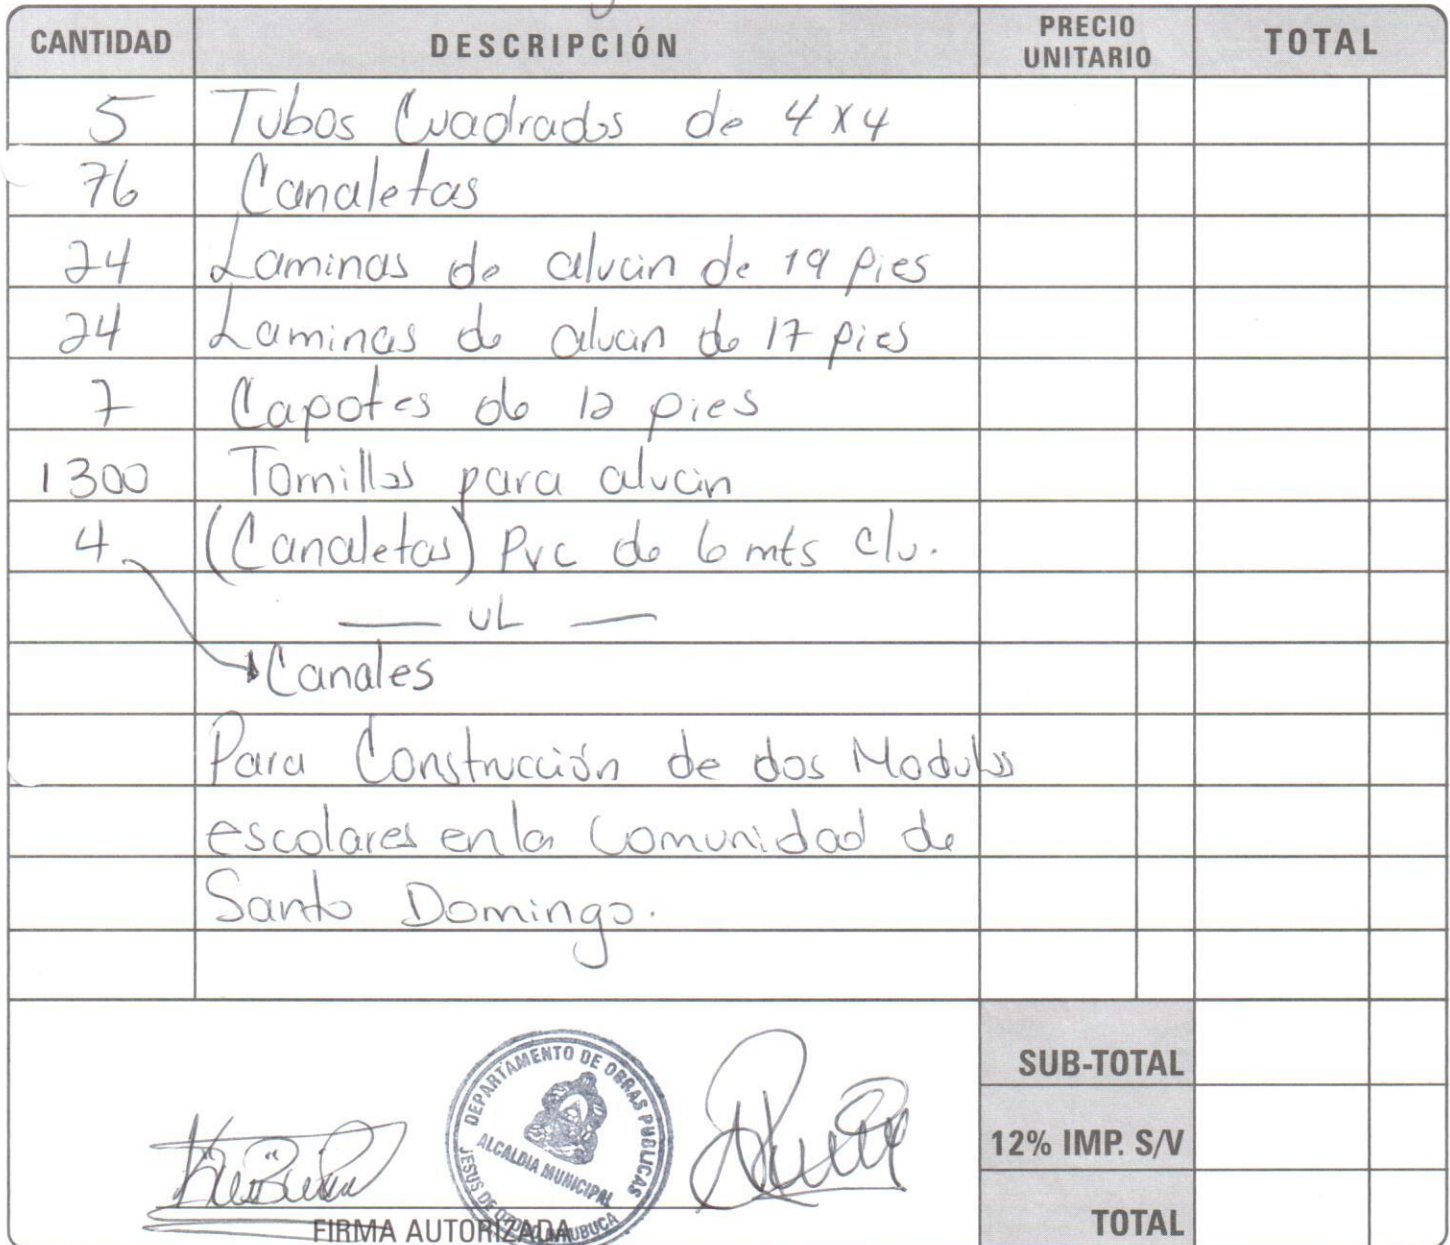 CANTIDAD DESCRIPCIÓN PRECIO UNITARIO TOTAL
5 Tubos Cuadrados de 4x4
76 Canaletas
24 Laminas de alucin de 19 pies
24 Laminas de alucin de 17 pies
7 Capotes de 12 pies
1300 Tornillos para alucin
4 (Canaletas) Pvc de 6 mts c/u.
— UL —
Canales
Para Construcción de dos Modulos
escolares en la Comunidad de
Santo Domingo.
SUB-TOTAL
12% IMP. S/V
TOTAL
DEPARTAMENTO DE OBRAS PUBLICAS
ALCALDIA MUNICIPAL
JESUS DE
FIRMA AUTORIZADA